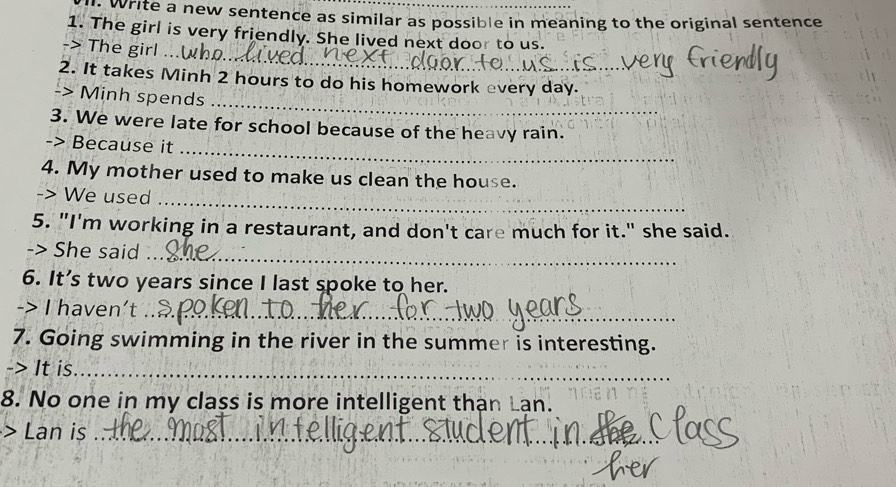 VII. Write a new sentence as similar as possible in meaning to the original sentence
1. The girl is very friendly. She lived next door to us.
-> The girl ...who lived next door to us is very friendly
2. It takes Minh 2 hours to do his homework every day.
-> Minh spends ..........
3. We were late for school because of the heavy rain.
-> Because it ..........
4. My mother used to make us clean the house.
-> We used ..........
5. "I'm working in a restaurant, and don't care much for it." she said.
-> She said ...She..........
6. It's two years since I last spoke to her.
-> I haven't ..spoken to her for two years
7. Going swimming in the river in the summer is interesting.
-> It is..........
8. No one in my class is more intelligent than Lan.
-> Lan is ...the most intelligent student in the class
her